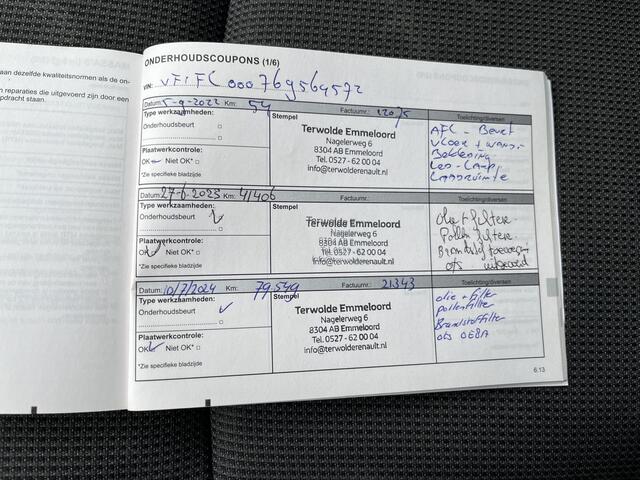 aan dezelfde kwaliteitsnormen als de on-
n reparaties die uitgevoerd zijn door een
pdracht staan.
ONDERHOUDSCOUPONS (1/6)
VIN: VF1FL000769564572
Datum: 5-9-2022 Km: 54 Factuurnr.: 22075 Toelichting/diversen
Type werkzaamheden:
Onderhoudsbeurt
Plaatwerkcontrole:
OK Niet OK*
*Zie specifieke bladzijde
Stempel
Terwolde Emmeloord
Nagelerweg 6
8304 AB Emmeloord
Tel. 0527 - 62 00 04
info@terwolderenault.nl
AFL - Beurt
Vloer + wand-
Bekleding
Led-Lamp
Laadruimte
Datum: 27-6-2023 Km: 41406 Factuurnr.: Toelichting/diversen
Type werkzaamheden:
Onderhoudsbeurt
Plaatwerkcontrole:
OK Niet OK*
*Zie specifieke bladzijde
Stempel
Terwolde Emmeloord
Nagelerweg 6
8304 AB Emmeloord
Tel. 0527 - 62 00 04
info@terwolderenault.nl
Olie + filters.
Pollen filters.
ots uitgevoerd
Datum: 10/7/2024 Km: 79.549 Factuurnr.: 21343 Toelichting/diversen
Type werkzaamheden:
Onderhoudsbeurt
Plaatwerkcontrole:
OK Niet OK*
*Zie specifieke bladzijde
Stempel
Terwolde Emmeloord
Nagelerweg 6
8304 AB Emmeloord
Tel. 0527 - 62 00 04
info@terwolderenault.nl
olie + filter
pollenfilter
Brandstoffilter
ots OE8A
6.13